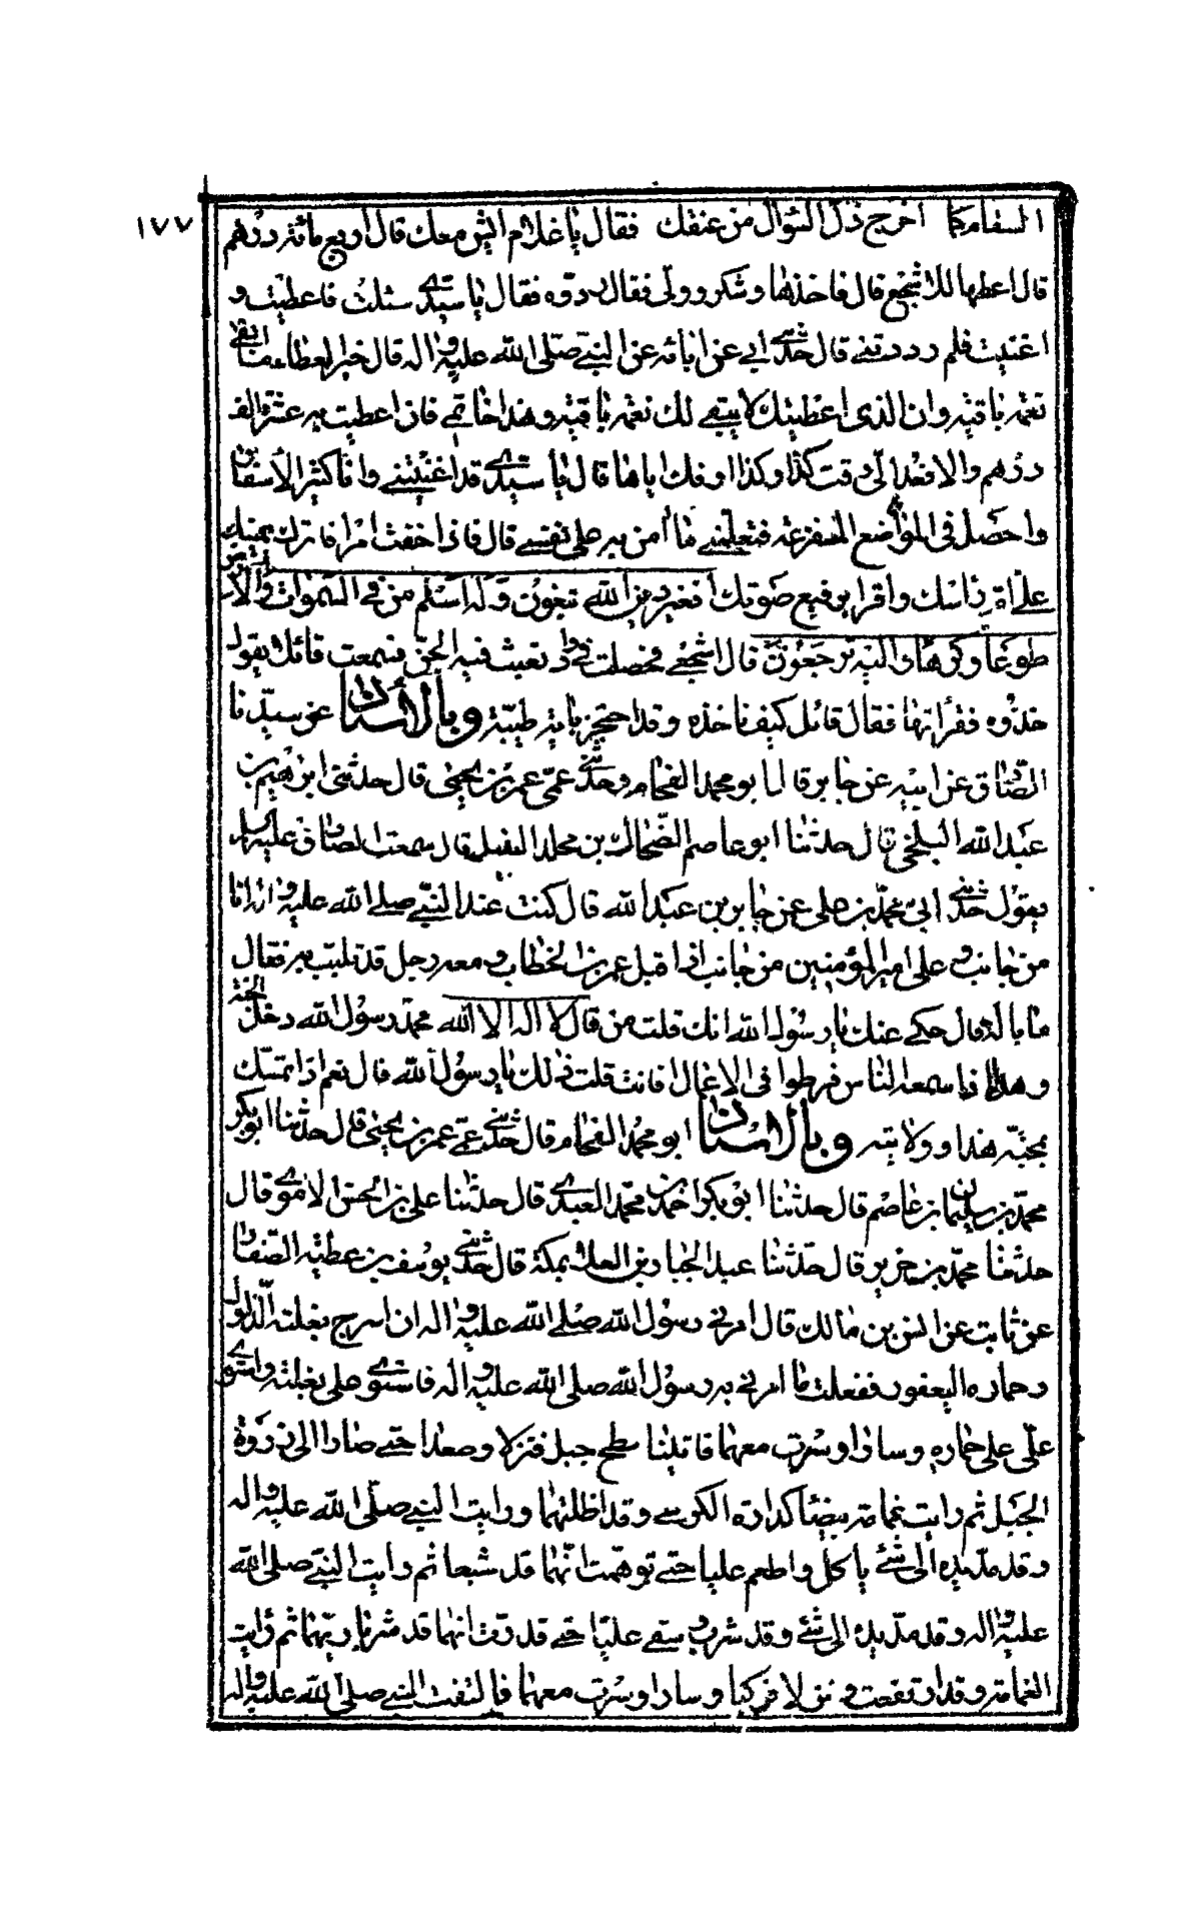 ١٧٧
السقام كما اخرج ذل السؤال من عنقك فقال يا غلام ايش معك قال اربع مائة درهم
قال اعطها للاشجع قال فاخذها وشكر وولى فقال ردوه فقال يا سيدى سئلت فاعطيت و
اغنيت فلم رددتنى قال حدثنى ابى عن ابائه عن النبى صلى الله عليه واله قال خير العطاء ما ابقى
نعمة باقية وان الذى اعطيتك لا يبقى لك نعمة باقية وهذا خاتمى فان اعطيت به عشرة الف
درهم والا فعد الى وقت كذا وكذا اوفك اياها قال يا سيدى قد اغنيتنى وانا كثير الاسفار
واحصل فى المواضع المفزعة فتعلمنى ما امن به على نفسى قال فاذا خفت امرا فاترك يمينك
على ام راسك واقرا برفيع صوتك افغير دين الله تبغون وله اسلم من فى السموات والارض
طوعا وكرها واليه ترجعون قال اشجع فحصلت فى واد تعبث فيه الجن فسمعت قائلا يقول
خذوه فقرأتها فقال قائل كيف ناخذه وقد احتجز باية طيبة وبالاسناد عن سيدنا
الصادق عن ابيه عن جابر قال ابو محمد الفحام وحدثنى عمى عمر بن يحيى قال حدثنى ابرهيم بن
عبد الله البلخى قال حدثنا ابو عاصم الضحاك بن مخلد النبيل قال سمعت الصادق عليه السلم
يقول حدثنى ابى محمد بن على عن جابر بن عبد الله قال كنت عند النبى صلى الله عليه واله انا
من جانب وعلى امير المؤمنين من جانب اذ اقبل عمر بن الخطاب ومعه رجل قد تلبب به فقال
ما باله قال حكى عنك يا رسول الله انك قلت من قال لا اله الا الله محمد رسول الله دخل الجنة
وهذا اذا سمعه الناس فرطوا فى الاعمال افانت قلت ذلك يا رسول الله قال نعم اذا تمسك
بمحبة هذا وولايته وبالاسناد ابو محمد الفحام قال حدثنى عمى عمر بن يحيى قال حدثنا ابو بكر
محمد بن سليمان بن عاصم قال حدثنا ابو بكر احمد بن محمد العبدى قال حدثنا على بن الحسن الاموى قال
حدثنا محمد بن جرير قال حدثنا عبد الجبار بن العلا بمكة قال حدثنى يوسف بن عطية الصفار
عن ثابت عن انس بن مالك قال امرنى رسول الله صلى الله عليه واله ان اسرج بغلته الدلدل
وحماره اليعفور ففعلت ما امرنى به رسول الله صلى الله عليه واله فاستوى على بغلته واستوى
على على حماره وسارا وسرت معهما فاتينا سطح جبل فنزلا وصعدا حتى صارا الى ذروة
الجبل ثم رايت غمامة بيضا كدارة الكرسى وقد اظلتهما ورايت النبى صلى الله عليه واله
وقد مد يده الى شئ ياكل واطعم عليا حتى توهمت انهما قد شبعا ثم رايت النبى صلى الله
عليه واله وقد مد يده الى شئ وقد شرب وسقى عليا حتى قدرت انهما قد شربا ريهما ثم رايت
الغمامة وقد ارتفعت ونزلا فركبا وسارا وسرت معهما فالتفت النبى صلى الله عليه واله